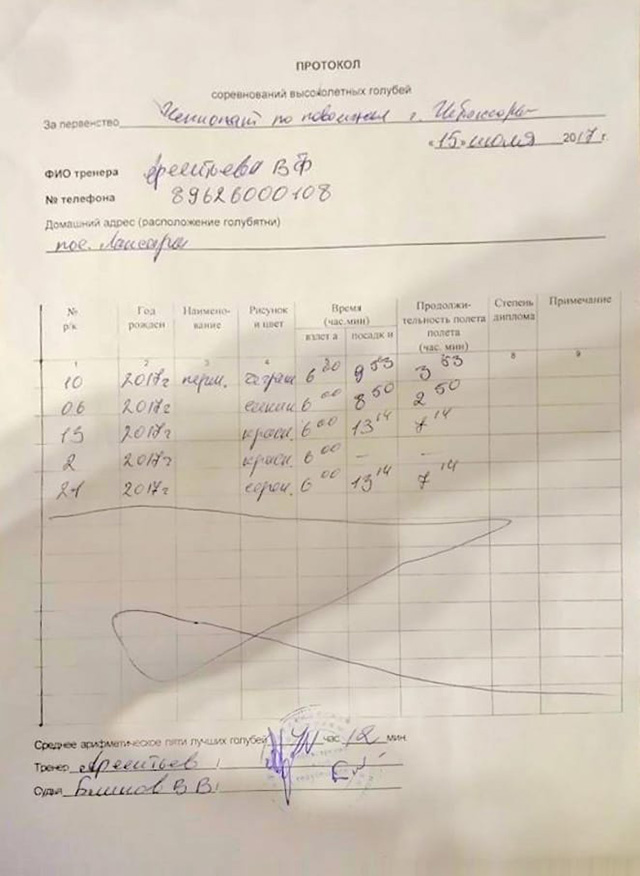 ПРОТОКОЛ
соревнований высоколетных голубей
За первенство Чемпионат по г. Чебоксары
«15» июля 2017 г.
ФИО тренера В Ф
№ телефона 89626000108
Домашний адрес (расположение голубятни)
пос. Лапсары
№ р/к Год рожден Наимено-вание Рисунок и цвет Время (час.мин) взлет а посадк и Продолжи-тельность полета полета (час. мин) Степень диплома Примечание
1 2 3 4 8 9
10 2017г 6 20 9 53 3 53
06 2017г 6 00 8 50 2 50
13 2017г красн. 6 00 13 14 7 14
2 2017г красн. 6 00 – –
21 2017г 6 00 13 14 7 14
Среднее арифметическое пяти лучших голубей час 12 мин.
Тренер
Судья Блинов В В